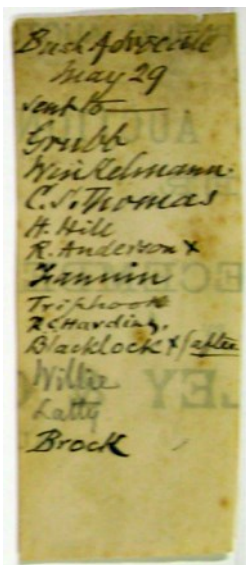 Bush Advocate
May 29
sent to —
Grubb
Winkelmann
C. S. Thomas
H. Hill
R. Anderson x
Fannin
Triphook
R C Harding.
Blacklock x
Willie
Latty
Brock
AUCTION